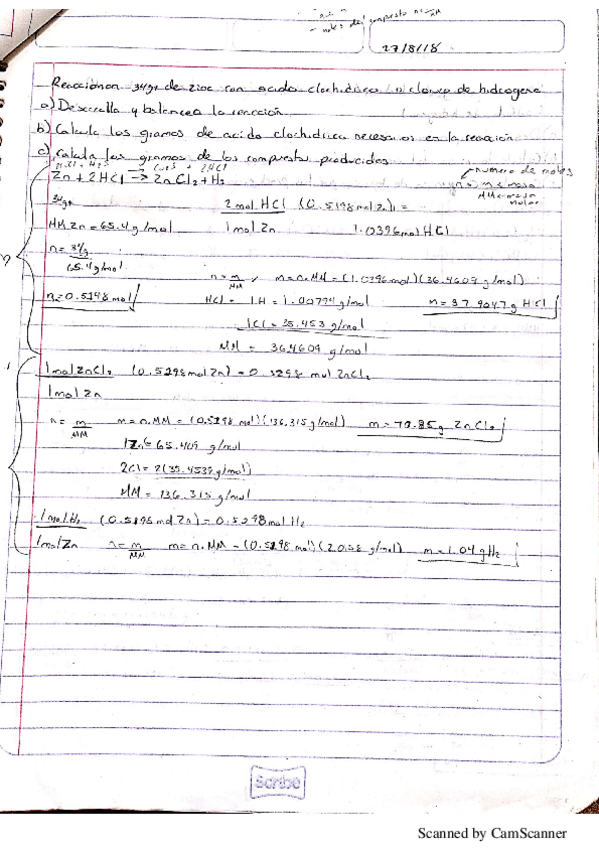 moles del compuesto n= m/MM
27/8/18
Reaccionan 34gr de zinc con acido clorhidrico o cloruro de hidrogeno
a) Desarrolla y balancea la reacción
b) Calcula los gramos de acido clorhidrico necesarios en la reacción
c) Calcula los gramos de los compuestos producidos
Zn + 2HCl → ZnCl2 + H2
numero de moles
n = m ← masa
MM ← masa molar
34gr
2 mol HCl (0.5198 mol Zn) =
MM Zn = 65.4 g/mol
1 mol Zn
1.0396 mol HCl
n = 34g
65.4 g/mol
n = m/MM
m = n.MM = (1.0396 mol)(36.4609 g/mol)
n = 0.5198 mol
HCl = 1H = 1.00794 g/mol
m = 37.9047 g HCl
1Cl = 35.453 g/mol
MM = 36.4609 g/mol
1 mol ZnCl2 (0.5298 mol Zn) = 0.5298 mol ZnCl2
1 mol Zn
n = m/MM m = n.MM = (0.5298 mol)(136.315 g/mol) m = 70.85g ZnCl2
1Zn = 65.409 g/mol
2Cl = 2(35.4539 g/mol)
MM = 136.315 g/mol
1 mol H2 (0.5198 mol Zn) = 0.5298 mol H2
1 mol Zn n = m/MM m = n.MM = (0.5298 mol)(2.0158 g/mol) m = 1.04 g H2
Scribe
Scanned by CamScanner